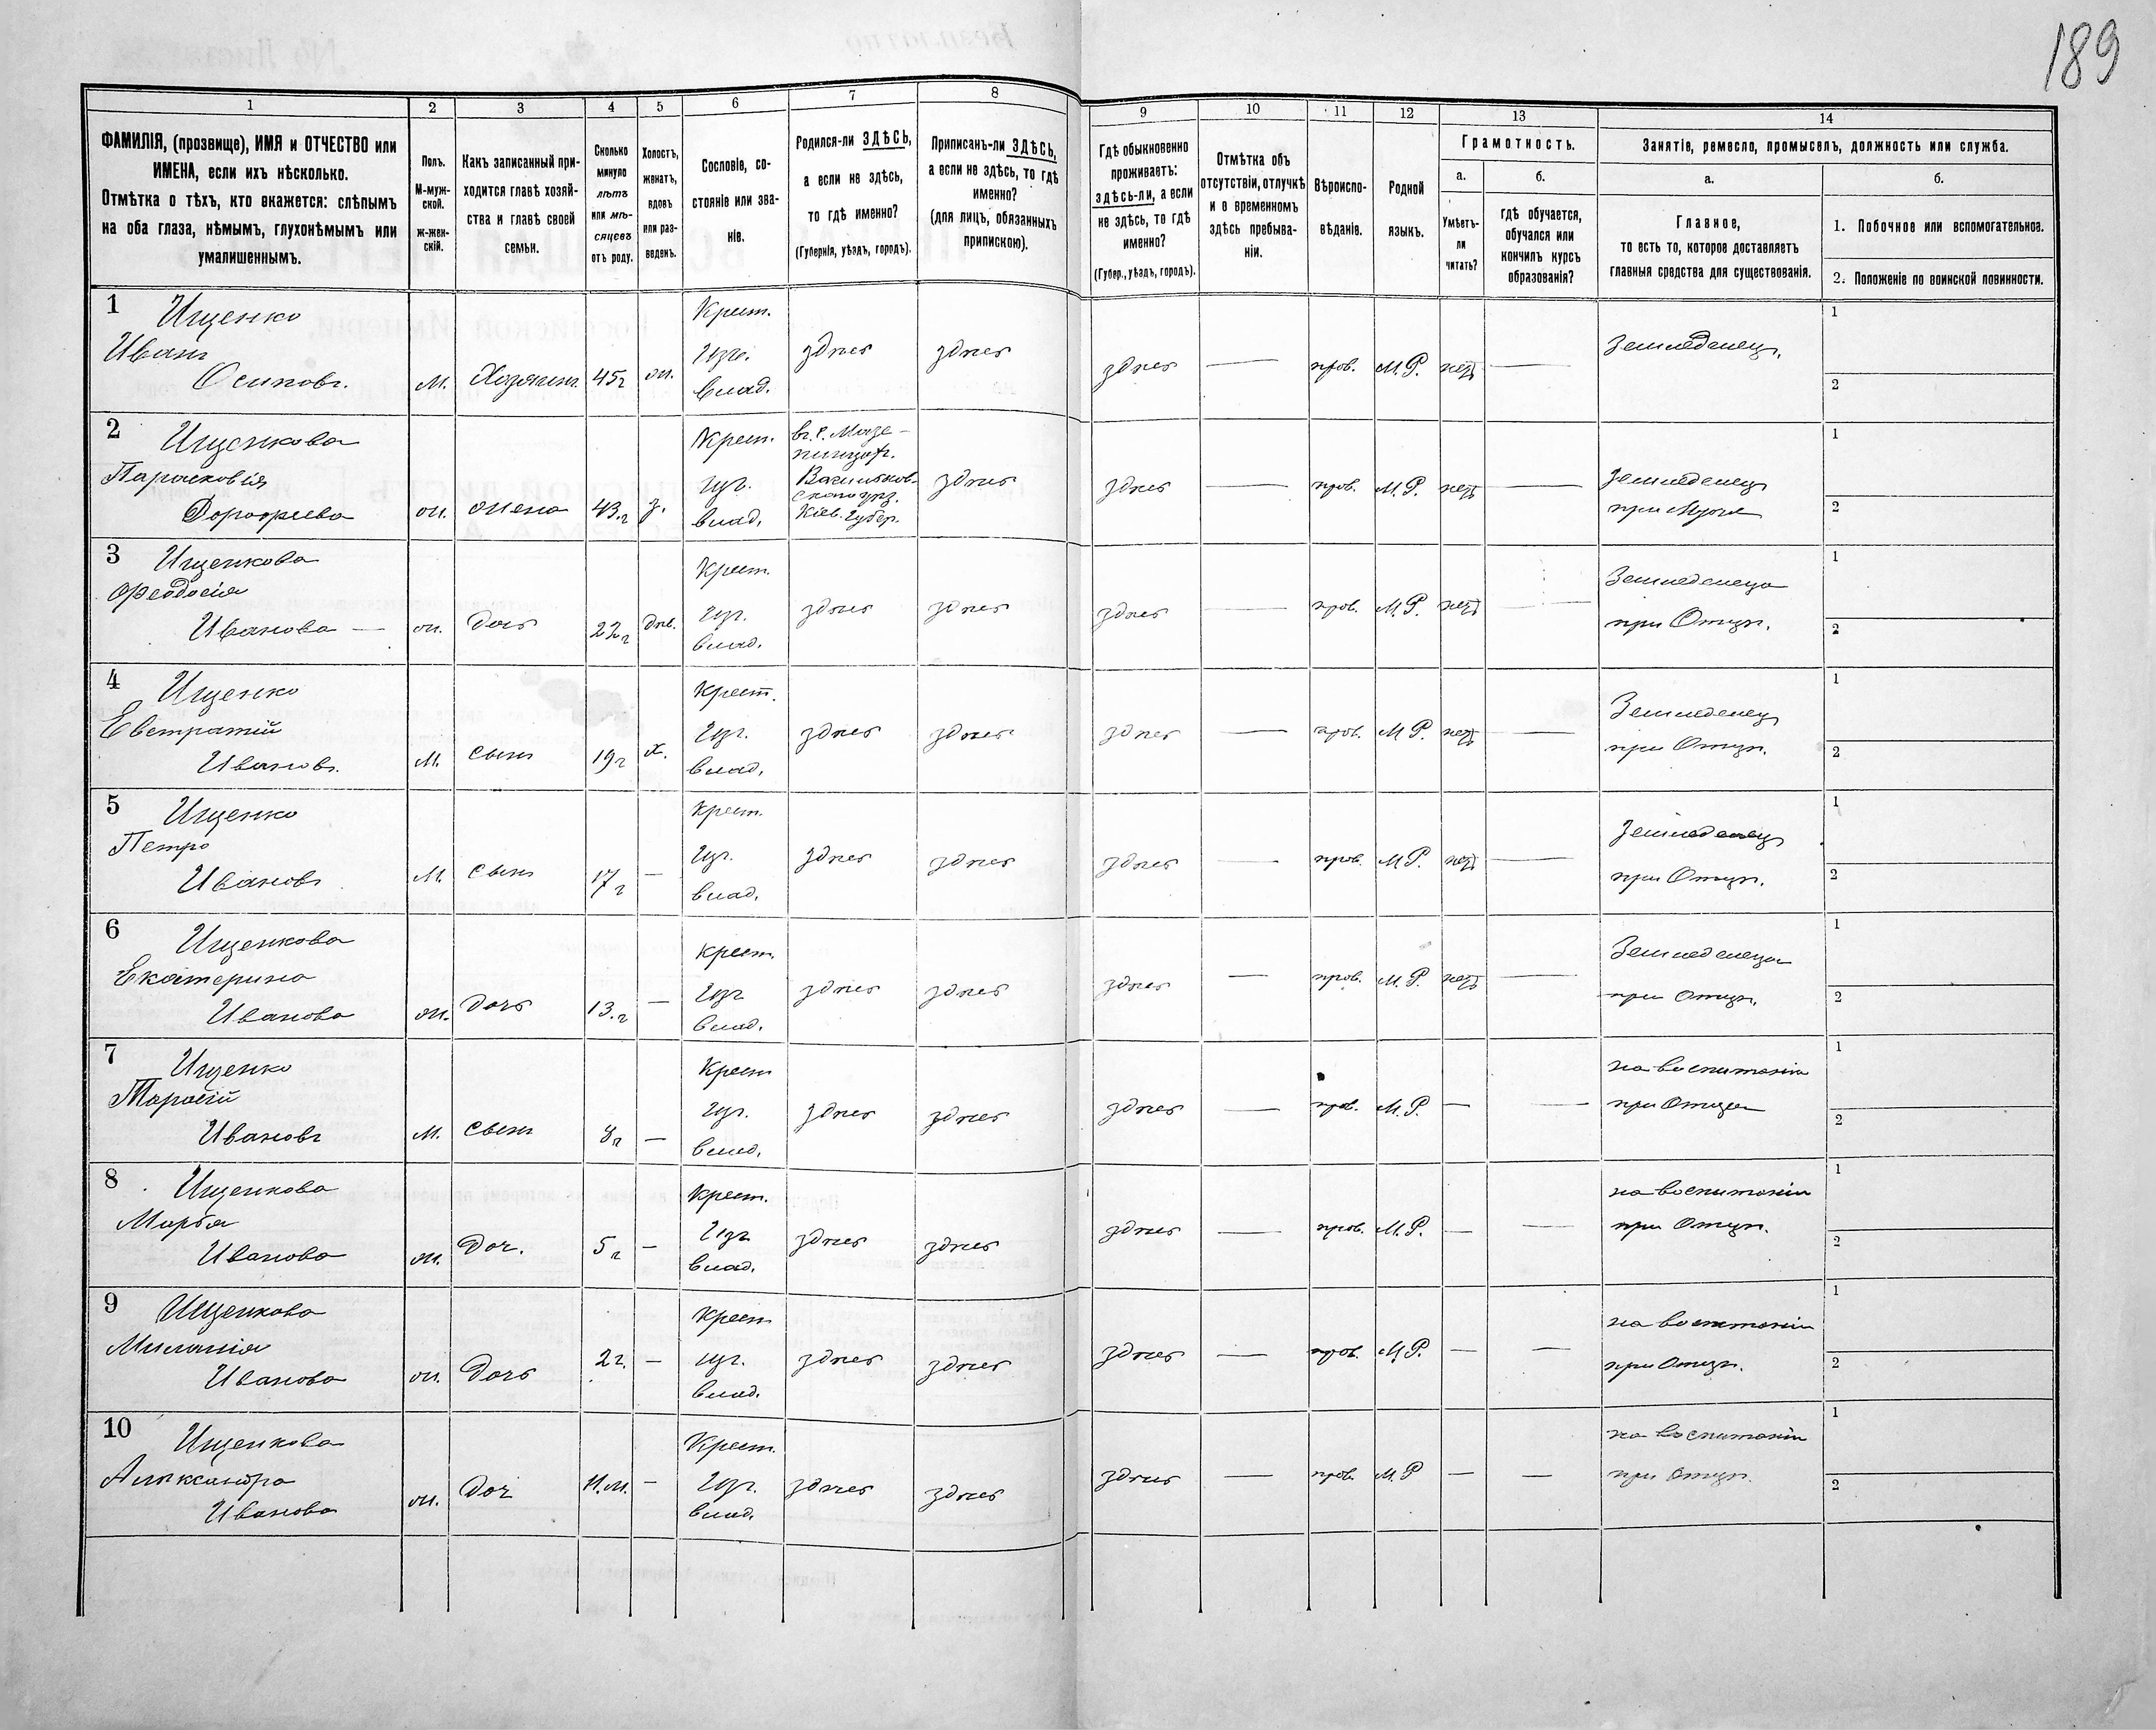 189
1 2 3 4 5 6 7 8 9 10 11 12 13 14
ФАМИЛІЯ, (прозвище), ИМЯ и ОТЧЕСТВО или
ИМЕНА, если ихъ нѣсколько.
Отмѣтка о тѣхъ, кто окажется: слѣпымъ
на оба глаза, нѣмымъ, глухонѣмымъ или
умалишеннымъ.
Полъ.
М-муж-
ской.
ж-жен-
скій.
Какъ записанный при-
ходится главѣ хозяй-
ства и главѣ своей
семьи.
Сколько
минуло
лѣтъ
или мѣ-
сяцевъ
отъ роду.
Холостъ,
женатъ,
вдовъ
или раз-
веденъ.
Сословіе, со-
стояніе или зва-
ніе.
Родился-ли ЗДѢСЬ,
а если не здѣсь,
то гдѣ именно?
(Губернія, уѣздъ, городъ).
Приписанъ-ли ЗДѢСЬ,
а если не здѣсь, то гдѣ
именно?
(для лицъ, обязанныхъ
припискою).
Гдѣ обыкновенно
проживаетъ:
здѣсь-ли, а если
не здѣсь, то гдѣ
именно?
(Губер., уѣздъ, городъ).
Отмѣтка объ
отсутствіи, отлучкѣ
и о временномъ
здѣсь пребыва-
ніи.
Вѣроиспо-
вѣданіе.
Родной
языкъ.
Грамотность.
а.
Умѣетъ-
ли
читать?
б.
гдѣ обучается,
обучался или
кончилъ курсъ
образованія?
Занятіе, ремесло, промыселъ, должность или служба.
а.
Главное,
то есть то, которое доставляетъ
главныя средства для существованія.
б.
1. Побочное или вспомогательное.
2. Положеніе по воинской повинности.
1 Ищенко
Иванъ
Осиповъ.
м. Хозяинъ 45г ж.
Крест.
изъ.
влад.
здесь здесь здесь — пров. М.Р. нетъ —
Земледелец.
1
2
2 Ищенкова
Парасковія
Дорофеева
ж. жена 43.г з.
Крест.
изъ.
влад.
въ с. Мазе-
пинцах.
Васильков-
скаго уез.
Кіев. Губер.
здесь здесь — пров. М.Р. нетъ
Земледелец
при Муже
1
2
3 Ищенкова
Феодосія
Иванова —
ж. дочь 22г дев.
Крест.
изъ.
влад.
здесь здесь здесь — пров. М.Р. нетъ —
Земледелеца
при Отцу.
1
2
4 Ищенко
Евстратій
Ивановъ.
м. сынъ 19г х.
Крест.
изъ.
влад.
здесь здесь здесь — пров. М Р. нетъ —
Земледелец
при Отцу.
1
2
5 Ищенко
Петро
Ивановъ
м. сынъ 17г —
Крест.
изъ.
влад.
здесь здесь здесь — пров. М Р. нетъ —
Земледелец
при Отцу.
1
2
6 Ищенкова
Екатерина
Иванова
ж. дочь 13.г —
крест.
изъ
влад.
здесь здесь здесь — пров. М.Р. нетъ —
Земледелеца
при отцу.
1
2
7 Ищенко
Тарасій
Ивановъ
м. сынъ 8г —
Крест
изъ.
влад.
здесь здесь здесь — пров. М.Р. — —
на воспитаніи
при Отцеи
1
2
8 Ищенкова
Марфа
Иванова
ж. Доч. 5г —
Крест.
изъ
влад.
здесь здесь здесь — пров. М.Р. — —
на воспитаніи
при Отцу.
1
2
9 Ищенкова
Миланія
Иванова
ж. Дочь 2г. —
Крест
изъ.
влад.
здесь здесь здесь — пров. М.Р. — —
на воспитаніи
при Отцу.
1
2
10 Ищенкова
Александра
Иванова
ж. Доч 11.м. —
Крест.
изъ.
влад.
здесь здесь здесь — пров. М.Р — —
на воспитаніи
при отцу.
1
2